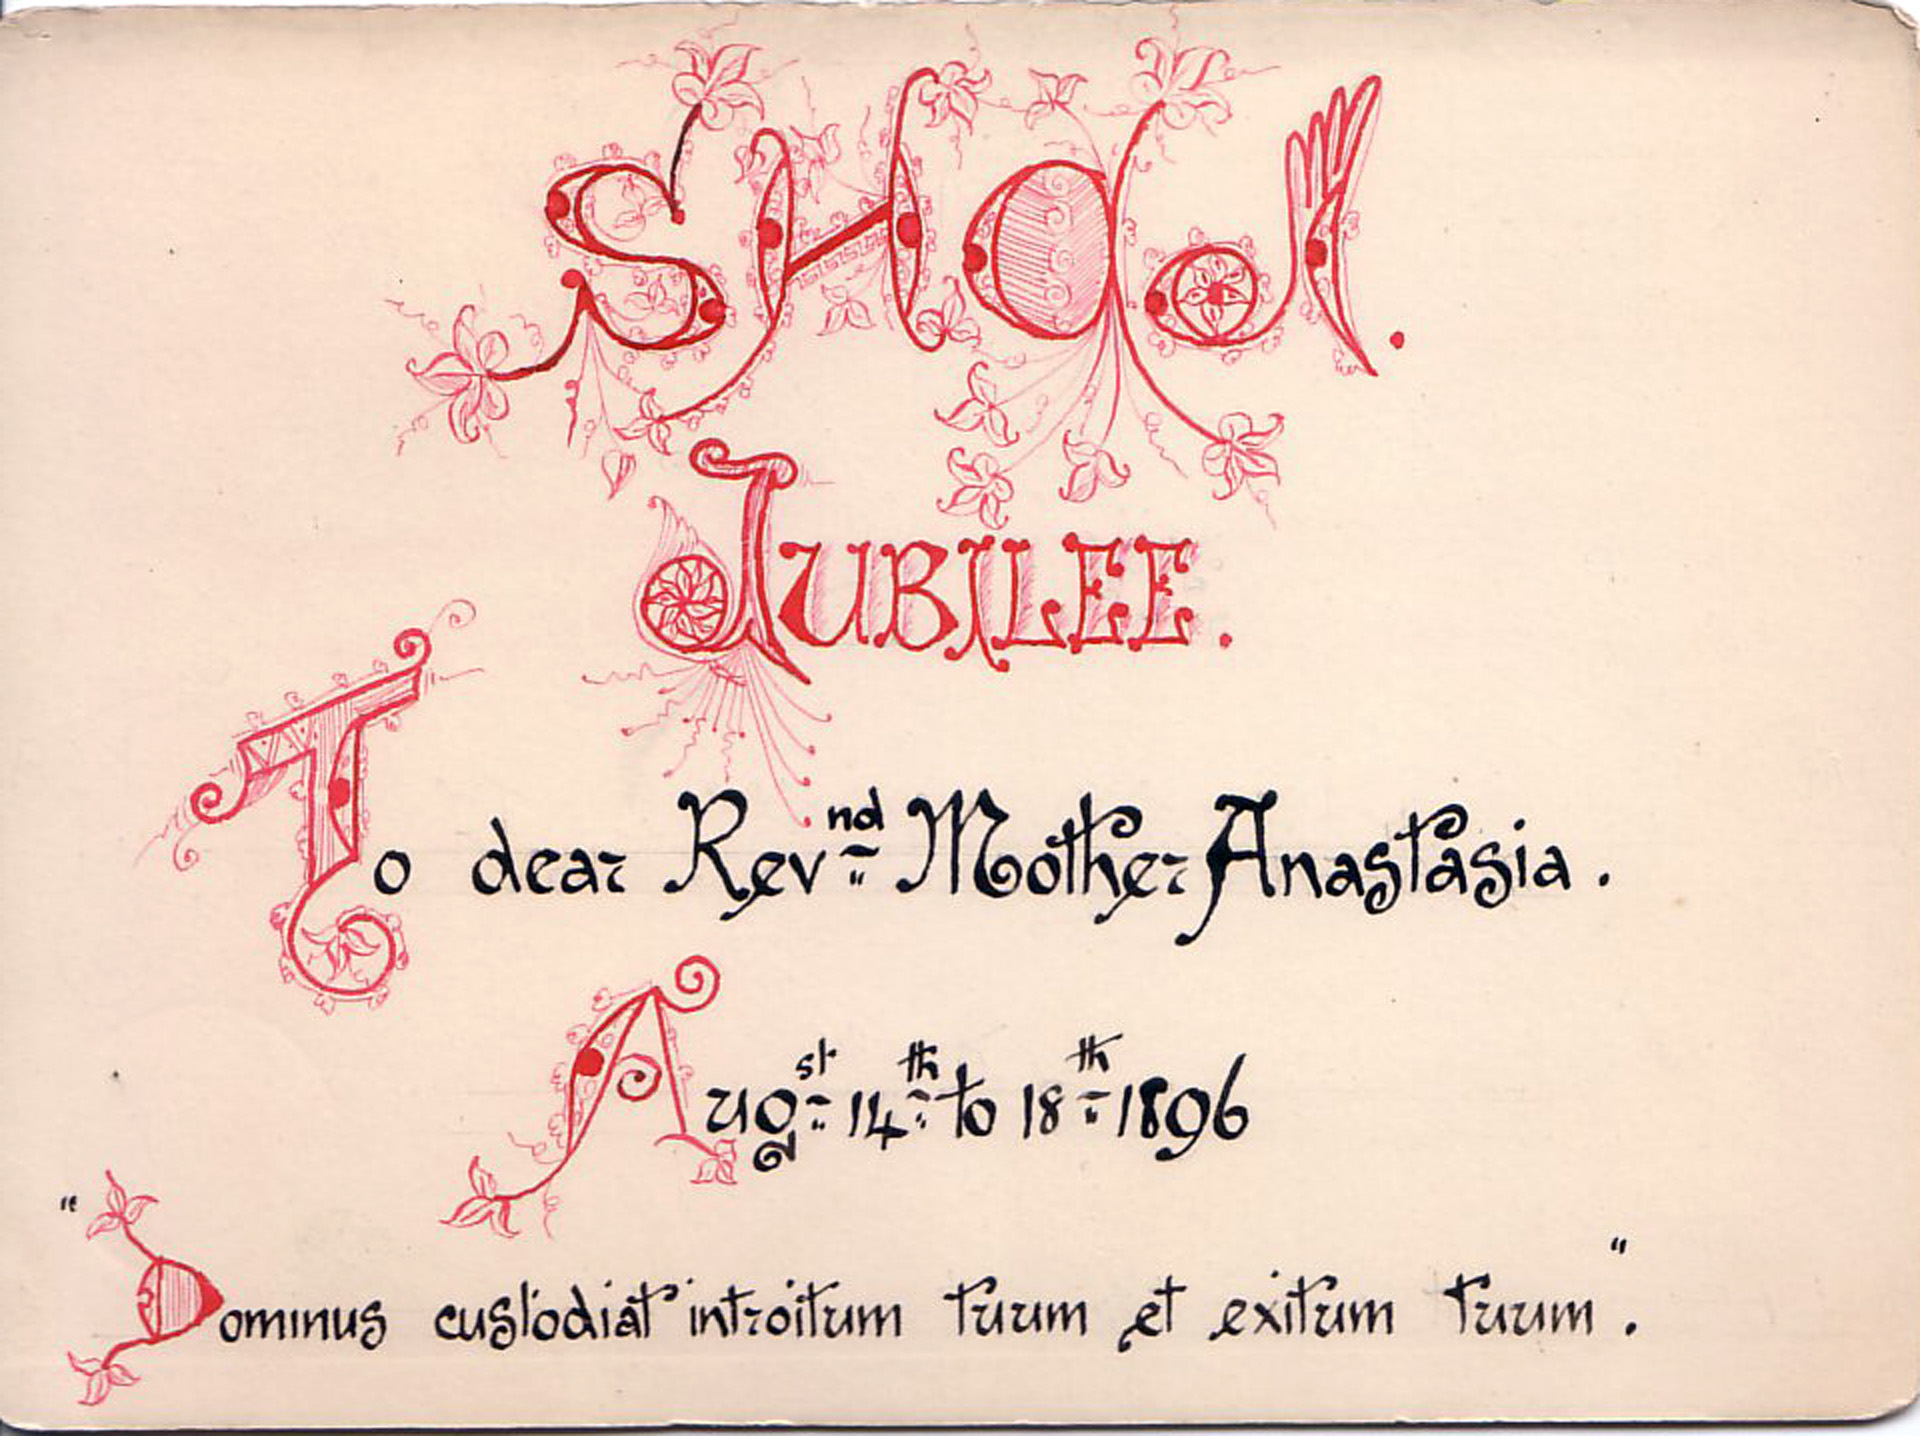 SHCJ.
JUBILEE.
To dear Revnd Mother Anastasia.
Augst 14th to 18th 1896
"Dominus custodiat introitum tuum et exitum tuum".